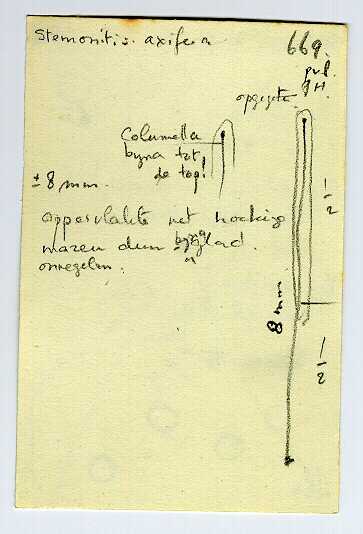 Stemonitis axifera
669.
opgezette
Columella
byna tot
de top!
± 8 mm.
oppervlakte net hoekige
mazen dun byna glad.
onregelm.
8 mm
1/2
1/2